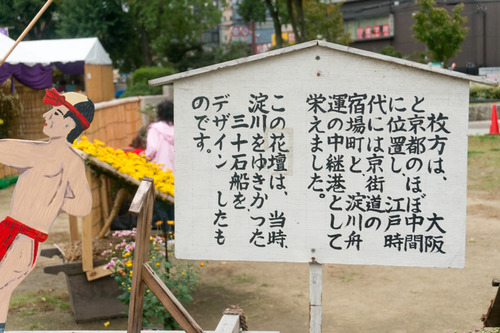 枚方は、大阪
と京都のほぼ中間
に位置し、江戸時
代には京街道の
宿場町と、淀川舟
運の中継港として
栄えました。
この花壇は、当時、
淀川をゆきかった
三十石船を
デザインしたも
のです。